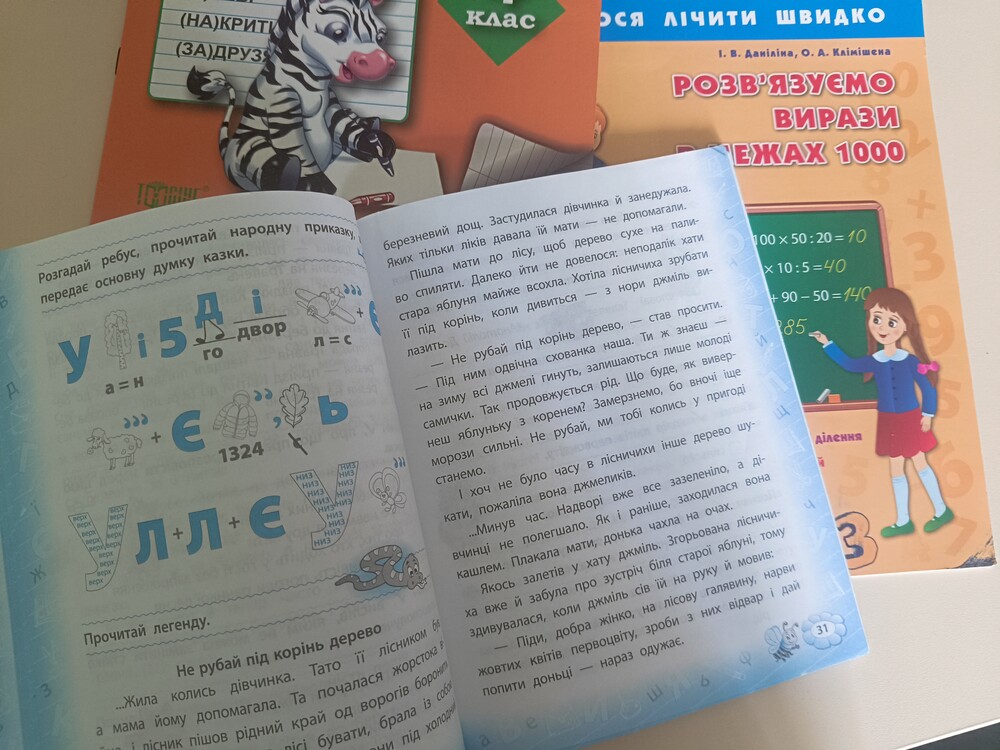 (НА)КРИТ
(ЗА)ДРУЗ
клас
ОСЯ ЛІЧИТИ ШВИДКО
І. В. Даніліна, О. А. Клімішена
РОЗВ'ЯЗУЄМО
ВИРАЗИ
В МЕЖАХ 1000
100 × 50 : 20 = 10
× 10 : 5 = 40
+ 90 − 50 = 140
285
ділення
3
Розгадай ребус, прочитай народну приказку,
передає основну думку казки.
У і 5 Д і
го двор
''' + Є
а = н
л = с
''' + Є '' , Ь
1324
верх
У Л + Л + Є У
низ
Прочитай легенду.
Не рубай під корінь дерево
...Жила колись дівчинка. Тато її лісником був
а мама йому допомагала. Та почалася жорстока в
і лісник пішов рідний край од ворогів боронит
лісі бувати, брала із собо
під холодн
березневий дощ. Застудилася дівчинка й занедужала.
Яких тільки ліків давала їй мати — не допомагали.
Пішла мати до лісу, щоб дерево сухе на пали-
во спиляти. Далеко йти не довелося: неподалік хати
стара яблуня майже всохла. Хотіла лісничиха зрубати
її під корінь, коли дивиться — з нори джміль ви-
лазить.
— Не рубай під корінь дерево, — став просити.
— Під ним одвічна схованка наша. Ти ж знаєш —
на зиму всі джмелі гинуть, залишаються лише молоді
самички. Так продовжується рід. Що буде, як вивер-
неш яблуньку з коренем? Замерзнемо, бо вночі іще
морози сильні. Не рубай, ми тобі колись у пригоді
станемо.
І хоч не було часу в лісничихи інше дерево шу-
кати, пожаліла вона джмеликів.
...Минув час. Надворі вже все зазеленіло, а ді-
вчинці не полегшало. Як і раніше, заходилася вона
кашлем. Плакала мати, донька чахла на очах.
Якось залетів у хату джміль. Згорьована лісничи-
ха вже й забула про зустріч біля старої яблуні, тому
здивувалася, коли джміль сів їй на руку й мовив:
— Піди, добра жінко, на лісову галявину, нарви
жовтих квітів первоцвіту, зроби з них відвар і дай
попити доньці — нараз одужає.
31